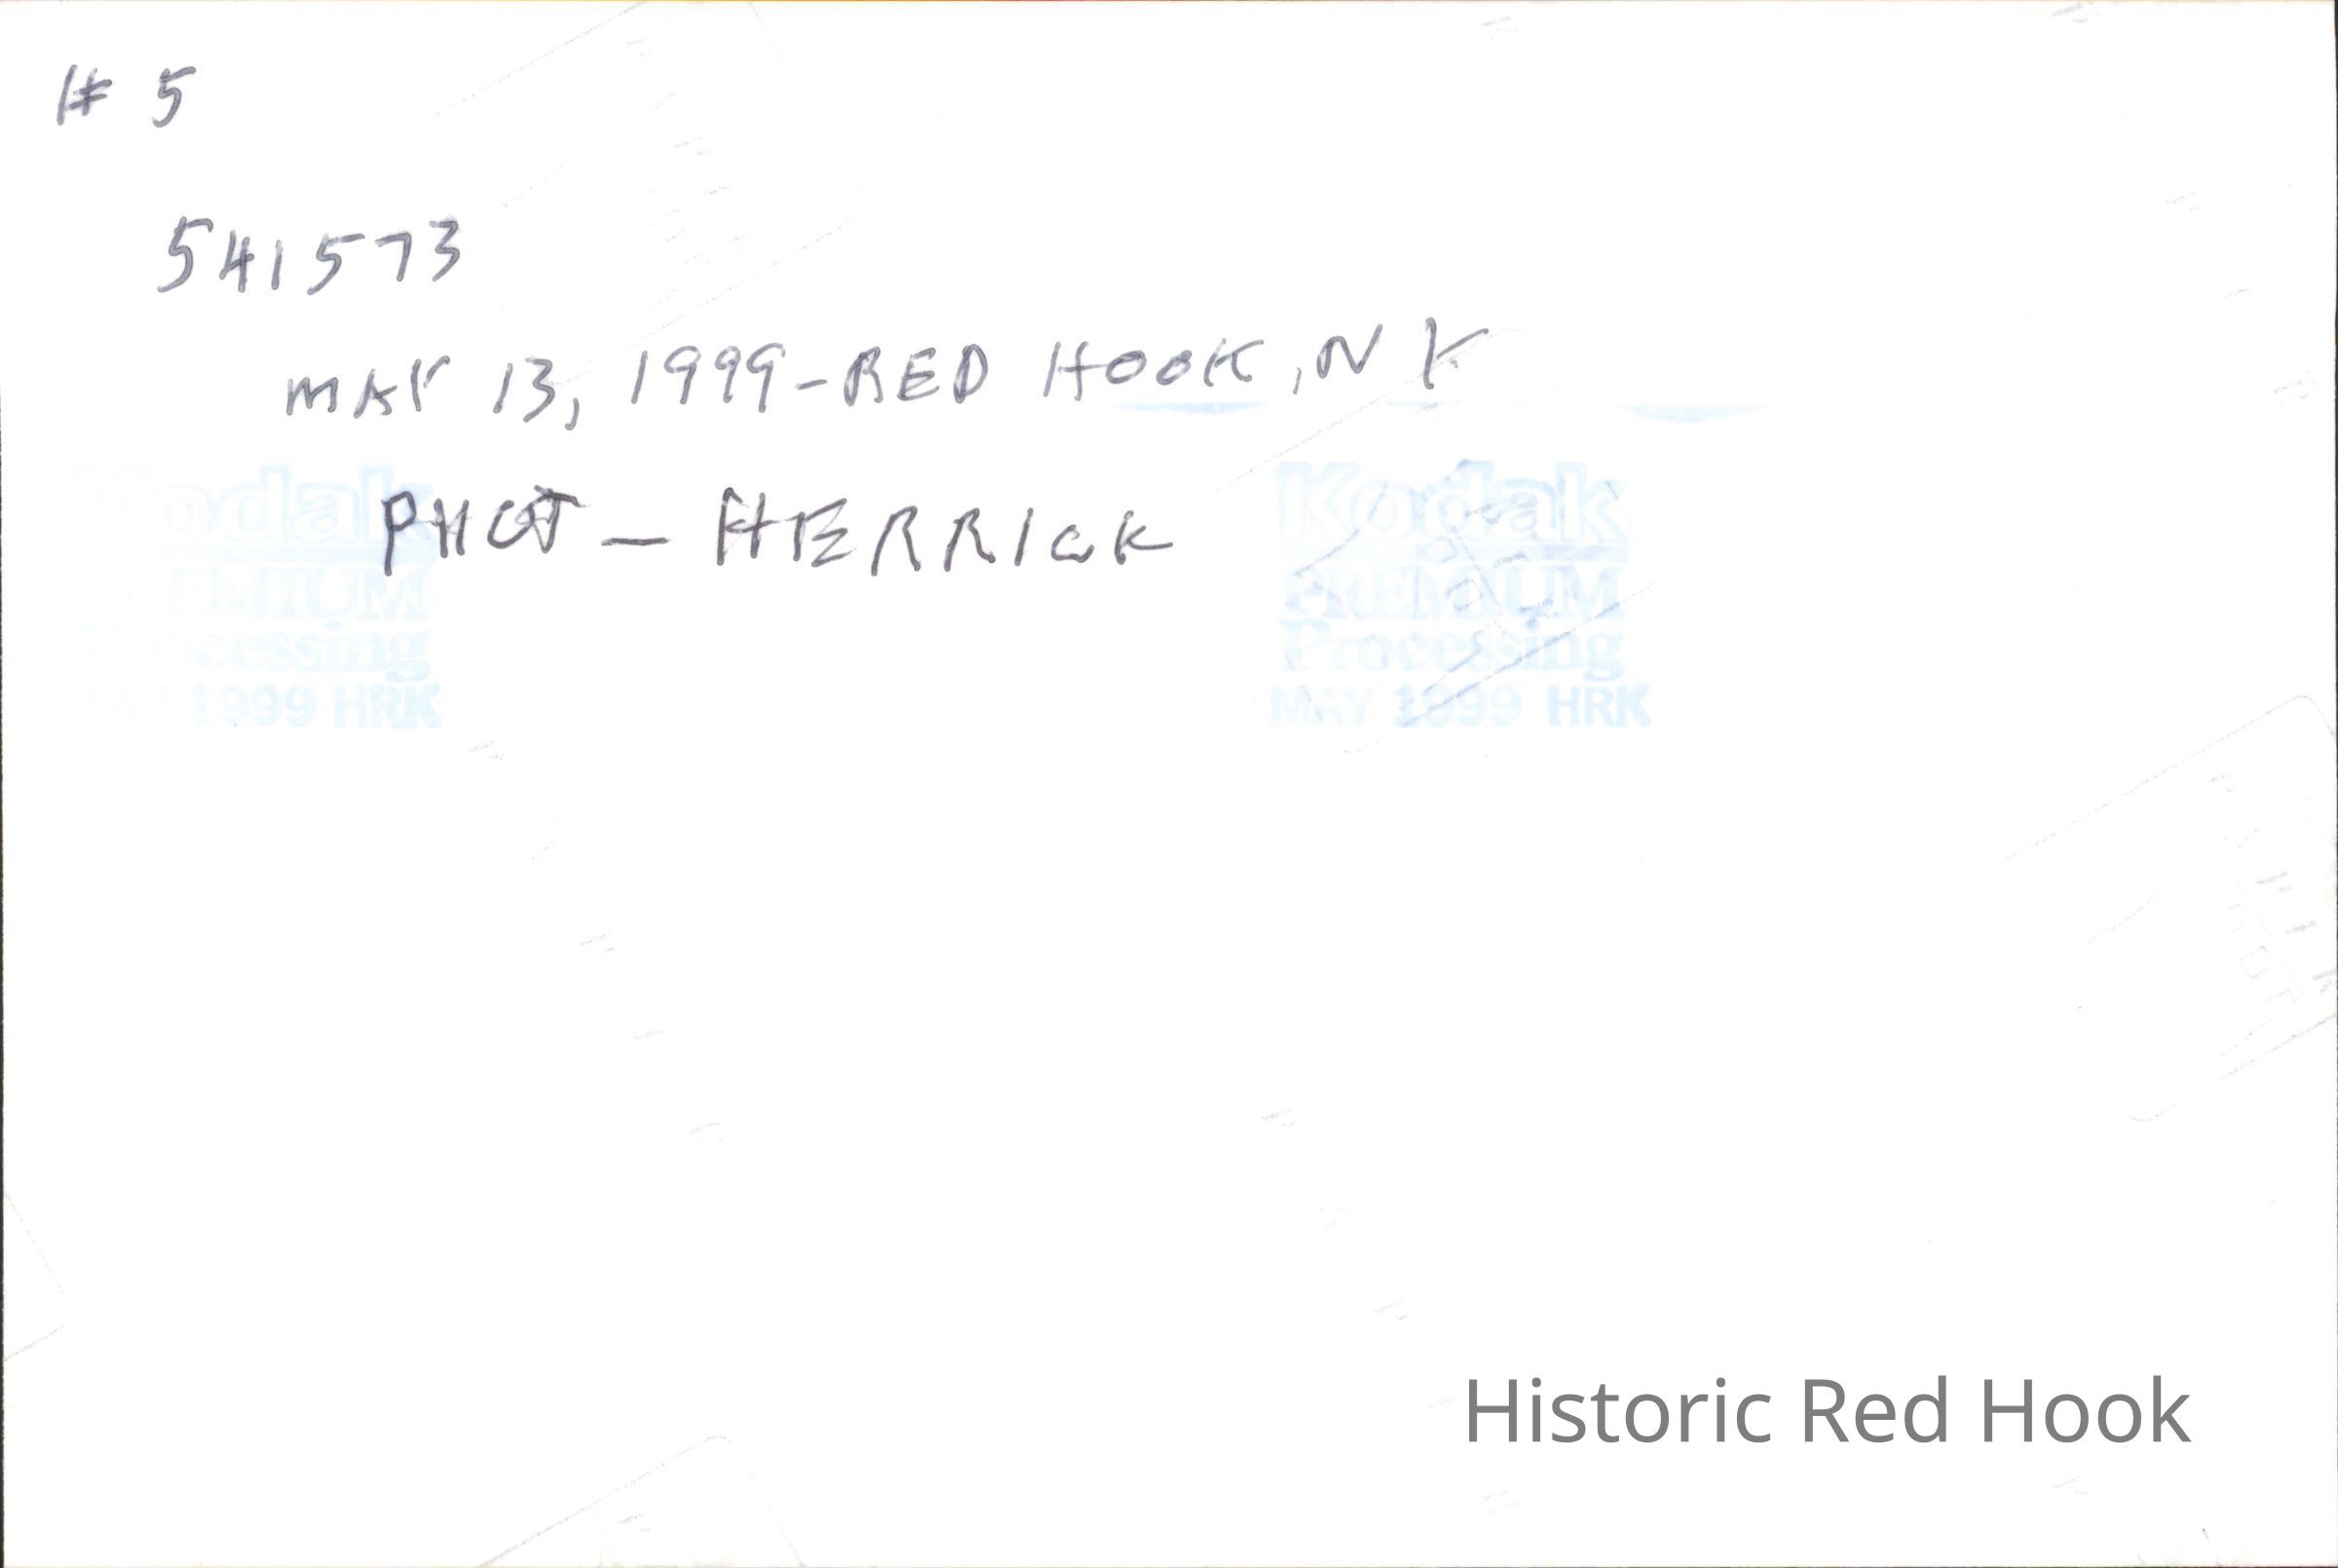 # 5
541573
MAY 13, 1999-RED HOOK, NY
PHOT - HERRICK
Kodak
PREMIUM
Processing
MAY 1999 HRK
Kodak
PREMIUM
Processing
MAY 1999 HRK
Historic Red Hook